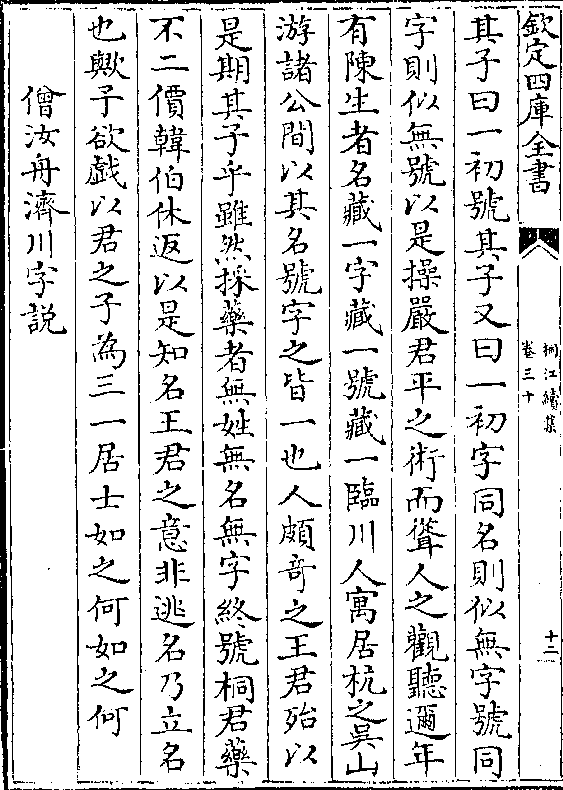 欽定四庫全書
桐江續集
卷三十
十二
其子曰一初號其子又曰一初字同名則似無字號同
字則似無號以是操嚴君平之術而聳人之觀聽邇年
有陳生者名藏一字藏一號藏一臨川人寓居杭之吳山
游諸公間以其名號字之皆一也人頗奇之王君殆以
是期其子乎雖然採藥者無姓無名無字終號桐君藥
不二價韓伯休返以是知名王君之意非逃名乃立名
也歟予欲戯以君之子為三一居士如之何如之何
僧汝舟濟川字説